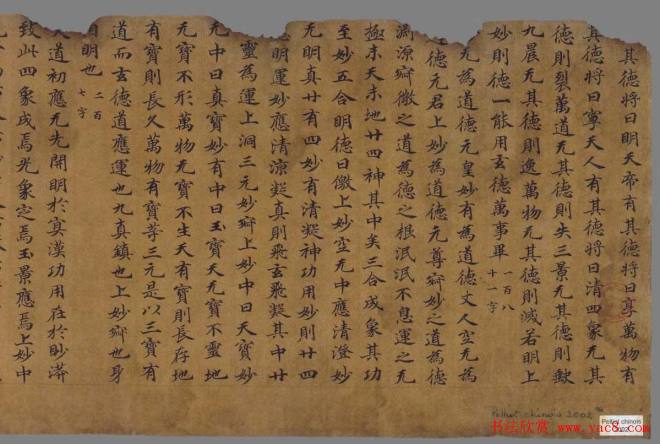 其德將曰明天帝有其德將曰享萬物有
其德將曰寧天人有其德將曰清四象无其
德則裂萬道无其德則失三景无其德則歇
九晨无其德則逸萬物无其德則滅若明上
妙則德一能用玄德萬事畢 一百八十一字
无為道德元皇妙有為道德丈人空无為
道德元君上妙為道德元尊
淵源 微之道為德之根泯泯不息運之无
極未天未地廿四神其中矣三合成象其功
至妙五合明德曰儌上妙空无中應清澄妙
无明真廿有四妙有清凝神功用妙則廿四
明運妙應清凉凝真則飛玄飛凝其中廿
靈為運上洞三元妙 上妙中曰天寶妙
无中曰真寶妙有中曰玉寶天无寶不靈地
无寶不形萬物无寶不生天有寶則長存地
有寶則長久萬物有寶等三元是以三寶有
道而玄德道應運也九真鎮也上妙 也身
明也 二百七字
道初應无先開明於 漠功用在於眇漭
致此四象成焉光象 焉玉景應焉上妙中
Pelliot chinois 2002
Pelliot chinois
2002
书法欣赏
www.yac8.com